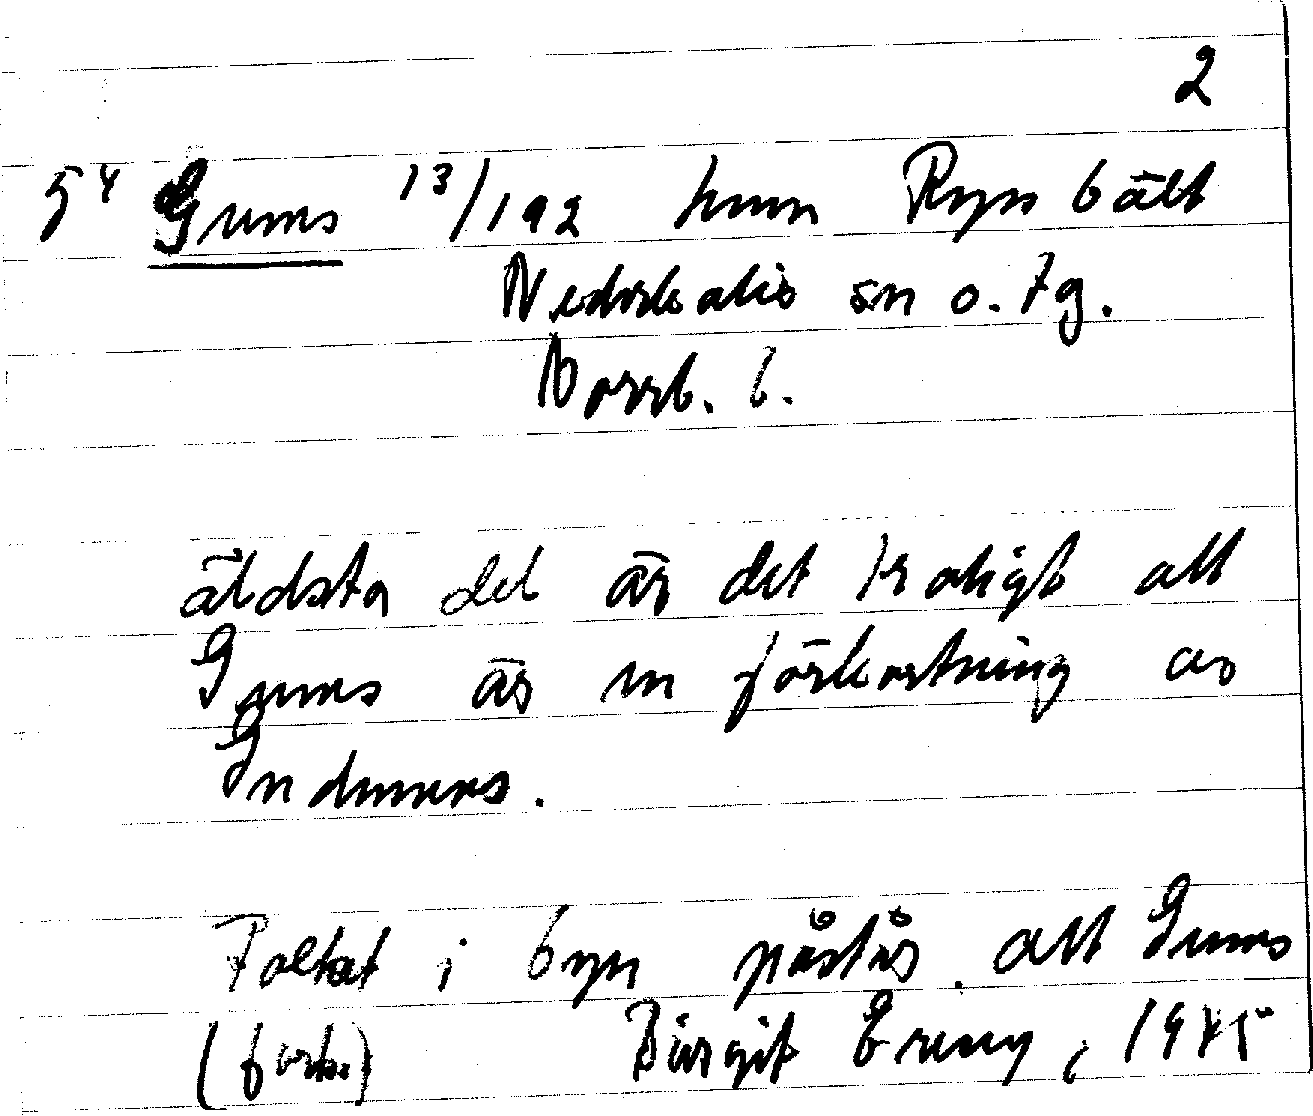 2
5⁴ Gums 13/192 hmn Ryssbält
Nederkalix sn o. tg.
Norrb. l.
äldsta del är det troligt att
Gums är en förkortning av
Gudmuns.
Folket i byn påstår. att Gums
(forts.) Birgit Ereny, 1945